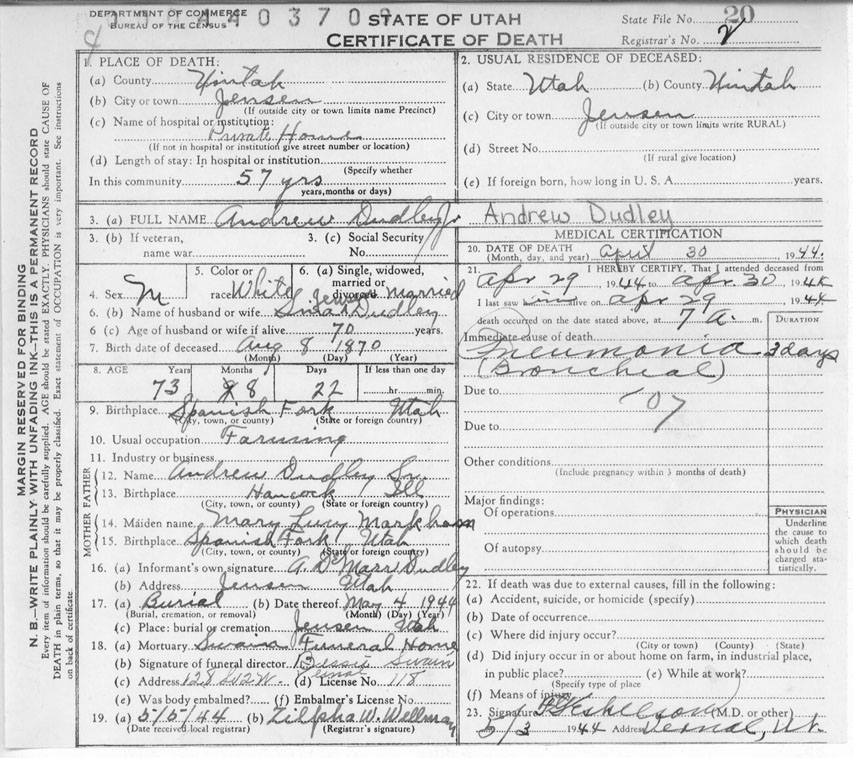 DEPARTMENT OF COMMERCE
BUREAU OF THE CENSUS
4403709
STATE OF UTAH
CERTIFICATE OF DEATH
State File No. 20
Registrar's No. 2
MARGIN RESERVED FOR BINDING
N. B.—WRITE PLAINLY WITH UNFADING INK—THIS IS A PERMANENT RECORD
Every item of information should be carefully supplied. AGE should be stated EXACTLY. PHYSICIANS should state CAUSE OF
DEATH in plain terms, so that it may be properly classified. Exact statement of OCCUPATION is very important. See instructions
on back of certificate.
1. PLACE OF DEATH:
(a) County Uintah
(b) City or town Jensen
(If outside city or town limits name Precinct)
(c) Name of hospital or institution:
Private Home
(If not in hospital or institution give street number or location)
(d) Length of stay: In hospital or institution
(Specify whether
In this community 57 yrs
years, months or days)
2. USUAL RESIDENCE OF DECEASED:
(a) State Utah (b) County Uintah
(c) City or town Jensen
(If outside city or town limits write RURAL)
(d) Street No.
(If rural give location)
(e) If foreign born, how long in U. S. A. years.
3. (a) FULL NAME Andrew Dudley Jr Andrew Dudley
3. (b) If veteran, name war
3. (c) Social Security No.
4. Sex M
5. Color or race White
6. (a) Single, widowed, married or divorced Married
6. (b) Name of husband or wife Dudley
6. (c) Age of husband or wife if alive 70 years.
7. Birth date of deceased Aug 8 1870
(Month) (Day) (Year)
8. AGE Years Months Days If less than one day
73 8 22 hr. min.
9. Birthplace Spanish Fork Utah
(City, town, or county) (State or foreign country)
10. Usual occupation Farming
11. Industry or business
FATHER
12. Name Andrew Dudley Sr
13. Birthplace Hancock Ill
(City, town, or county) (State or foreign country)
MOTHER
14. Maiden name Mary Lucy Markham
15. Birthplace Spanish Fork Utah
(City, town, or county) (State or foreign country)
16. (a) Informant's own signature Dudley
(b) Address Jensen Utah
17. (a) Burial (b) Date thereof May 4 1944
(Burial, cremation, or removal) (Month) (Day) (Year)
(c) Place: burial or cremation Jensen Utah
18. (a) Mortuary Swain Funeral Home
(b) Signature of funeral director Bessie Swain
(c) Address 128 S 2 W Vernal (d) License No. 118
(e) Was body embalmed? (f) Embalmer's License No.
19. (a) 5/5/44 (b) Zilpha W. Wellman
(Date received local registrar) (Registrar's signature)
MEDICAL CERTIFICATION
20. DATE OF DEATH
(Month, day, and year) April 30, 1944.
21. I HEREBY CERTIFY, That I attended deceased from
Apr 29, 1944 to Apr 30, 1944
I last saw him alive on Apr 29, 1944
death occurred on the date stated above, at 7 A. m.
DURATION
Immediate cause of death
Pneumonia 3 days
(Bronchial)
Due to
107
Due to
Other conditions
(Include pregnancy within 3 months of death)
Major findings:
Of operations
Of autopsy
PHYSICIAN
Underline
the cause to
which death
should be
charged sta-
tistically.
22. If death was due to external causes, fill in the following:
(a) Accident, suicide, or homicide (specify)
(b) Date of occurrence
(c) Where did injury occur?
(City or town) (County) (State)
(d) Did injury occur in or about home on farm, in industrial place,
in public place? (e) While at work?
(Specify type of place
(f) Means of injury
23. Signature (M.D. or other)
5/3 1944 Address Vernal, Ut.